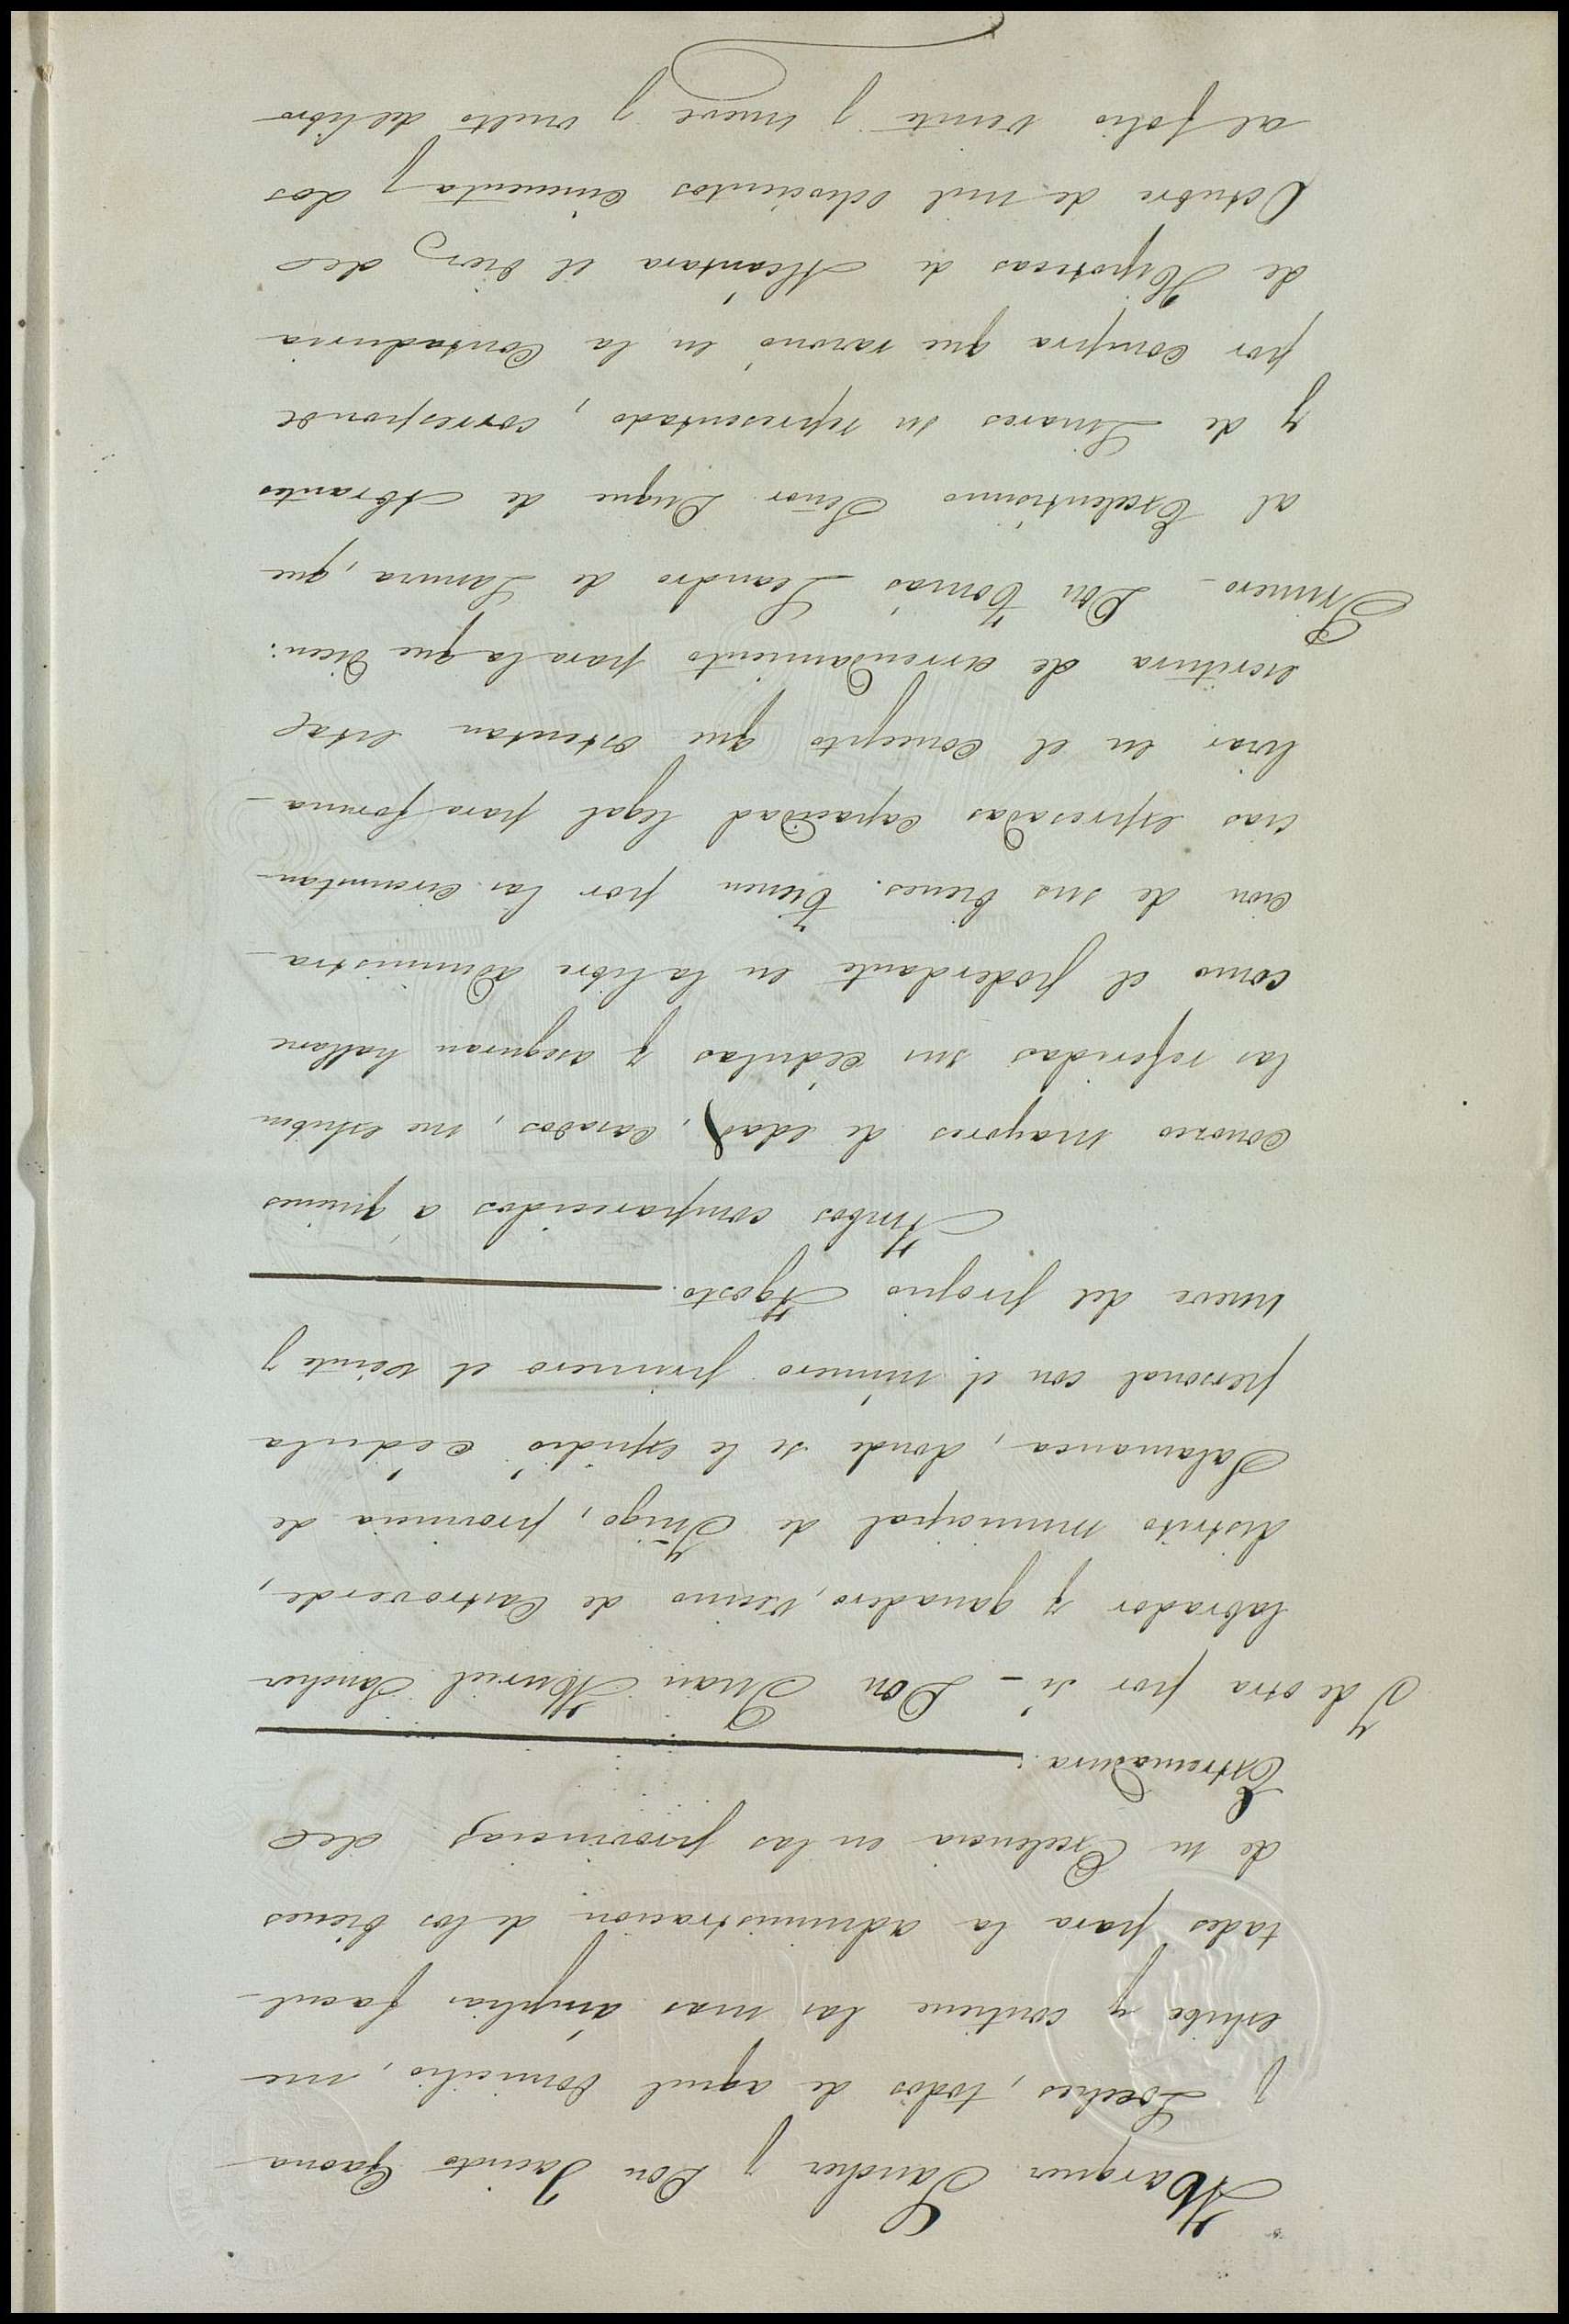 Marquez Sanchez y Don Jacinto Gaona
y Loeches, todos de aquel domicilio, me
exhibe y contiene las mas ámplias facul-
tades para la administracion de los bienes
de su Excelencia en las provincias de
Extremadura.
Y de otra por sí – Don Juan Muriel Sanchez
labrador y ganadero, vecino de Castroverde,
distrito municipal de Iñigo, provincia de
Salamanca, donde se le espidió cédula
personal con el número primero el veinte y
nueve del propio Agosto.
Ambos comparecidos á quienes
conozco mayores de edad, casados, me exhiben
las referidas sus cédulas y aseguran hallarse
como el poderdante en la libre administra-
cion de sus bienes. Tienen por las circunstan-
cias espresadas capacidad legal para forma-
lizar en el concepto que ostentan esta
escritura de arrendamiento para la que dicen:
Primero – Don Tomás Leandro de Lamura, que
al Excelentísimo Señor Duque de Abrantes
y de Linares su representado, corresponde
por compra que razonó en la Contaduria
de Hipotecas de Alcántara el diez de
Octubre de mil ochocientos cincuenta y dos
al folio veinte y nueve y vuelto del libro